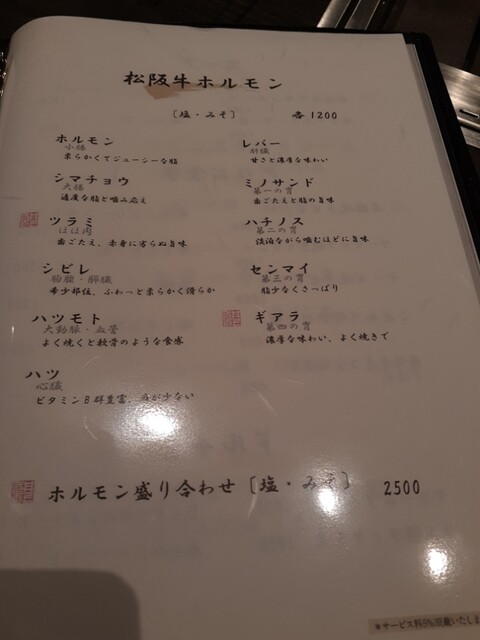 松阪牛ホルモン
〔塩・みそ〕 各1200
ホルモン
小腸
柔らかくてジューシーな脂
シマチョウ
大腸
適度な脂と噛み応え
ツラミ
ほほ肉
歯ごたえ、赤身に劣らぬ旨味
シビレ
胸腺・膵臓
希少部位、ふわっと柔らかく滑らか
ハツモト
大動脈・血管
よく焼くと軟骨のような食感
ハツ
心臓
ビタミンB群豊富、
が少ない
レバー
肝臓
甘さと濃厚な味わい
ミノサンド
第一の胃
歯ごたえと脂の旨味
ハチノス
第二の胃
淡泊ながら噛むほどに旨味
センマイ
第三の胃
脂少なくさっぱり
ギアラ
第四の胃
濃厚な味わい、よく焼きで
ホルモン盛り合わせ〔塩・みそ〕 2500
※サービス料5%頂戴いたしま